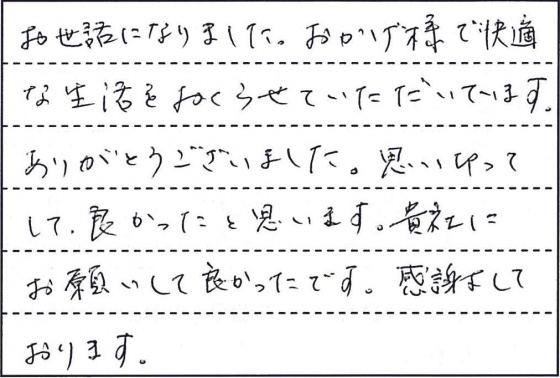 お世話になりました。おかげ様で快適
な生活をおくらせていただいています。
ありがとうございました。思い切って
して、良かったと思います。貴社に
お願いして良かったです。感謝して
おります。